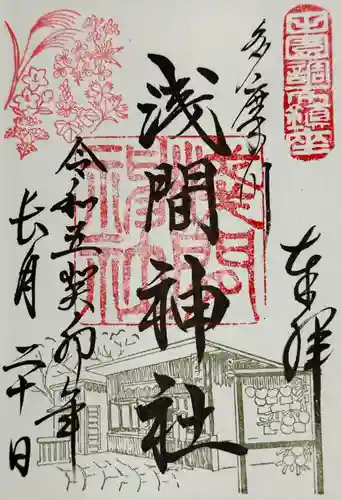 田園調布鎮座
奉拝
多摩川
浅間神社
令和五癸卯年
長月二十日